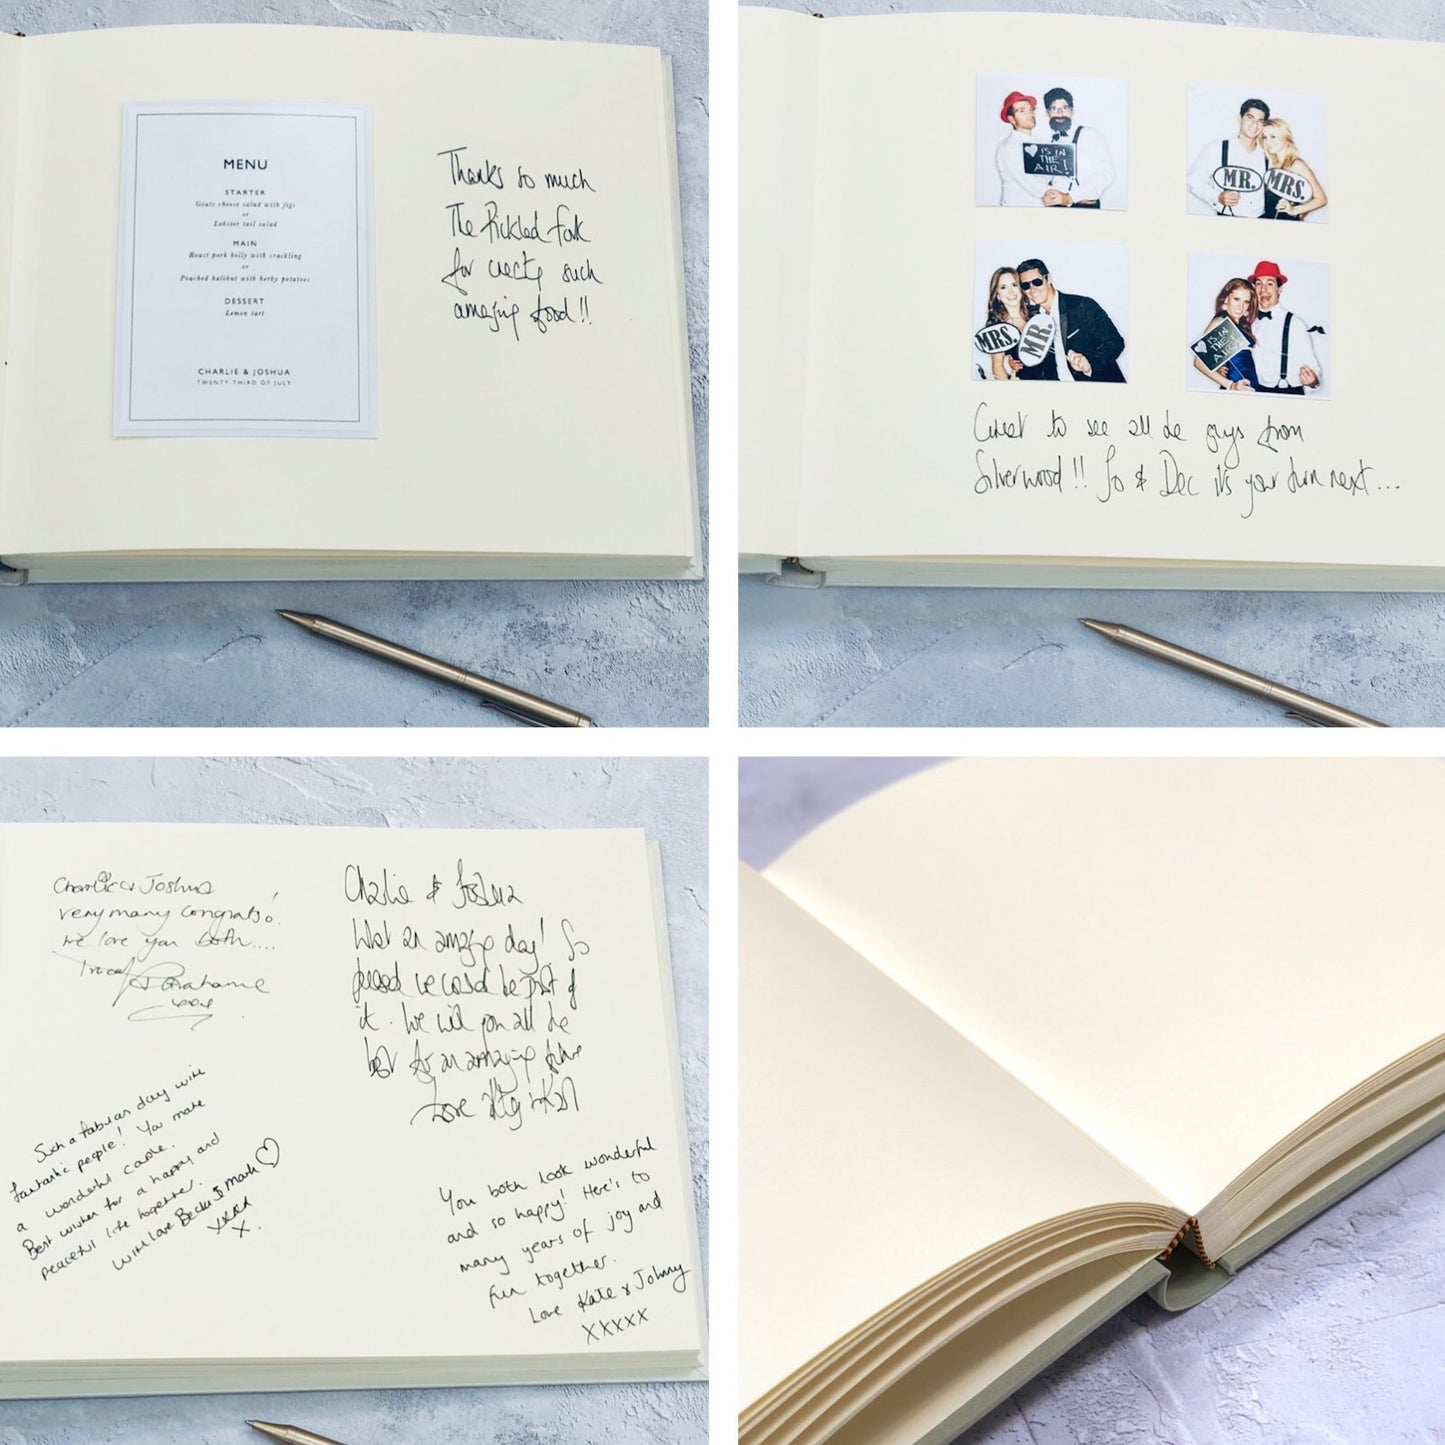 MENU
STARTER
Goats cheese salad with figs
or
Lobster tail salad
MAIN
Roast pork belly with crackling
or
Poached halibut with herby potatoes
DESSERT
Lemon tart
CHARLIE & JOSHUA
TWENTY THIRD OF JULY
Thanks so much
The Pickled Fork
for creating such
amazing food!!
IS IN
THE
AIR!
MR.
MRS.
MRS.
MR.
IS IN
THE
AIR!
Great to see all the guys from
Silverwood!! Jo & Dec it's your turn next...
Charlie & Joshua
Very many congrats!
we love you both....
Graham
xxxx
Charlie & Joshua
What an amazing day! So
pleased we could be part of
it. We wish you all the
best for an amazing future
Love &
Such a fabulous day with
fantastic people! You make
a wonderful couple.
Best wishes for a happy and
peaceful life together.
With love Becka & Mark
xxxx
x.
You both look wonderful
and so happy! Here's to
many years of joy and
fun together.
Love Kate & Johnny
xxxxx